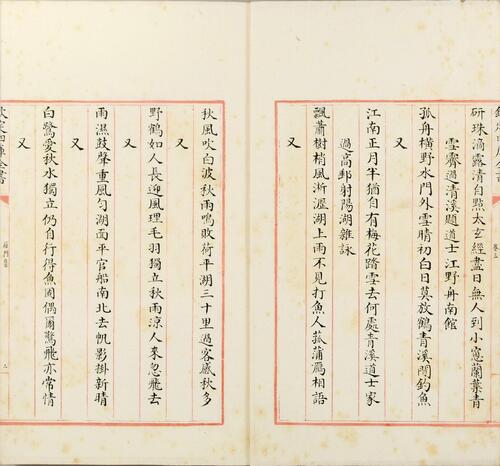 卷三
研珠滴露清自點太玄經盡日無人到小窻蘭葉青
雪霽過清溪題道士江野舟南館
孤舟橫野水門外雪晴初白日莫放鶴青溪閒釣魚
又
江南正月半猶自有梅花踏雪去何處青溪道士家
過高郵射陽湖雜詠
飄蕭樹梢風淅瀝湖上雨不見打魚人菰蒲鴈相語
又
秋風吹白波秋雨鳴敗荷平湖三十里過客感秋多
又
野鶴如人長迎風理毛羽獨立秋雨涼人來忽飛去
又
雨濕鼓聲重風勻湖面平官船南北去帆影掛新晴
又
白鷺愛秋水獨立仍自行得魚固偶爾驚飛亦常情
欽定四庫全書
雁門集
二